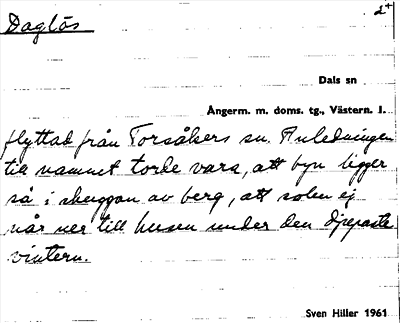 Daglös
2+
Dals sn
Ångerm. m. doms. tg., Västern. l.
flyttad från Torsåkers sn. Anledningen
till namnet torde vara, att byn ligger
så i skuggan av berg, att solen ej
når ner till husen under den djupaste
vintern.
Sven Hiller 1961